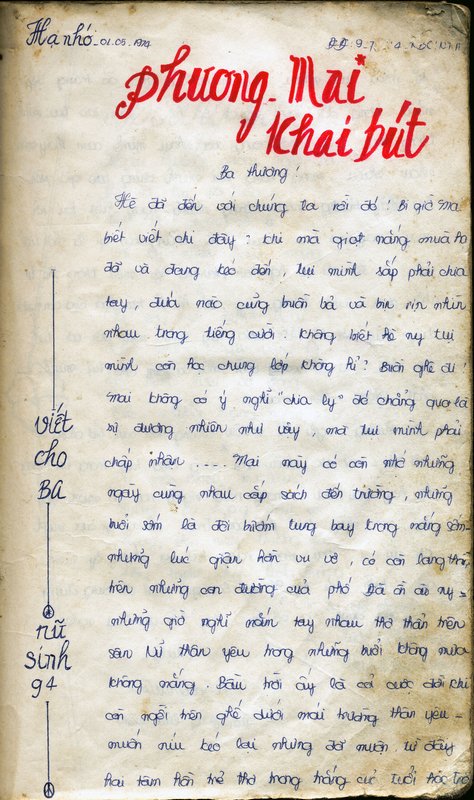 Hạ nhớ _ 01.05.1974
Phương_Mai
Khai bút
Ba thương!
Hè đã đến với chúng ta rồi đó! Bi giờ Mai
biết viết chi đây? Khi mà giọt nắng mùa hạ
đã và đang kéo đến, tụi mình sắp phải chia
tay, đứa nào cũng buồn bả và bịn rịn nhìn
nhau trong tiếng cười. Không biết hè ny tụi
mình còn học chung lớp không hỉ? Buồn ghê đi!
Mai không có ý nghĩ "chia ly" đó chẳng qua là
sự đương nhiên như vậy, mà tụi mình phải
chấp nhận .... Mai này có còn nhớ những
ngày cùng nhau cắp sách đến trường, những
buổi sớm là đôi bướm tung bay trong nắng sớm_
những lúc giận hờn vu vơ, có còn lang thang
trên những con đường của phố Đà ồn ào ny_
những giờ nghỉ nắm tay nhau thơ thẩn trên
sân Nữ thân yêu trong những buổi không mưa
không nắng. Bầu trời ấy là cả cuộc đời khi
còn ngồi trên ghế dưới mái trường thân yêu_
muốn níu kéo lại nhưng đã muộn, từ đây
hai tâm hồn trẻ thơ trong trắng của tuổi học trò
viết
cho
BA
nữ
sinh
94